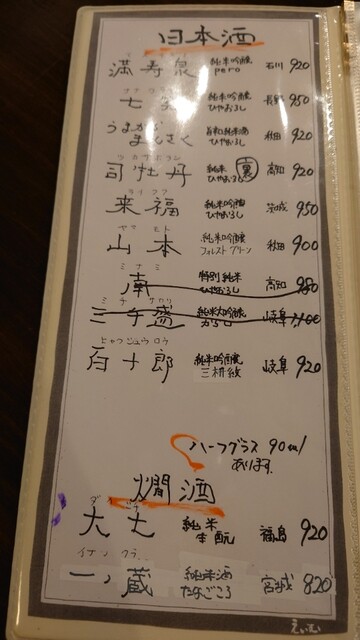 日本酒
満寿泉 純米吟醸 pero 石川 920
七 純米吟醸 ひやおろし 長野 950
うまからまんさく 旨辛口純米酒 ひやおろし 秋田 920
ツカサボタン
司牡丹 純米 ひやおろし 裏 高知 920
ライフク
来福 純米吟醸 ひやおろし 茨城 950
ヤマ モト
山本 純米吟醸 フォレストグリーン 秋田 900
ミナミ
南 特別純米 ひやおろし 高知 980
ミチ サカリ
三千盛 純米大吟醸 からくち 岐阜 1100
ヒャクジュウロウ
百十郎 純米吟醸 三耕紋 岐阜 920
ハーフグラス 90ml あります。
燗酒
ダイ シチ
大七 純米 生酛 福島 920
イチノ クラ
一ノ蔵 純米酒 たなごころ 宮城 820